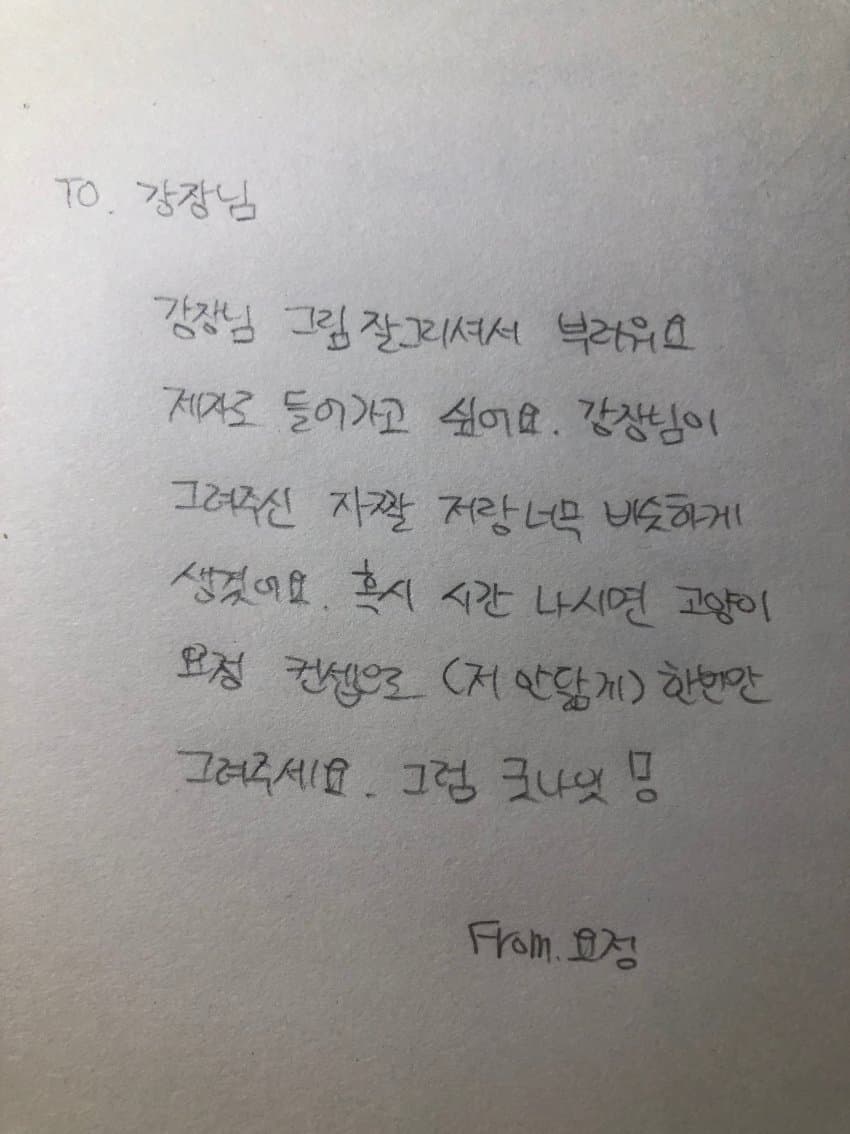 TO. 강장님
강장님 그림 잘그리셔서 부러워요
제자로 들어가고 싶어요. 강장님이
그려주신 자짤 저랑 너무 비슷하게
생겼어요. 혹시 시간 나시면 고양이
요정 컨셉으로 (저 안닮게) 한번만
그려주세요. 그럼 굿나잇
From. 요정